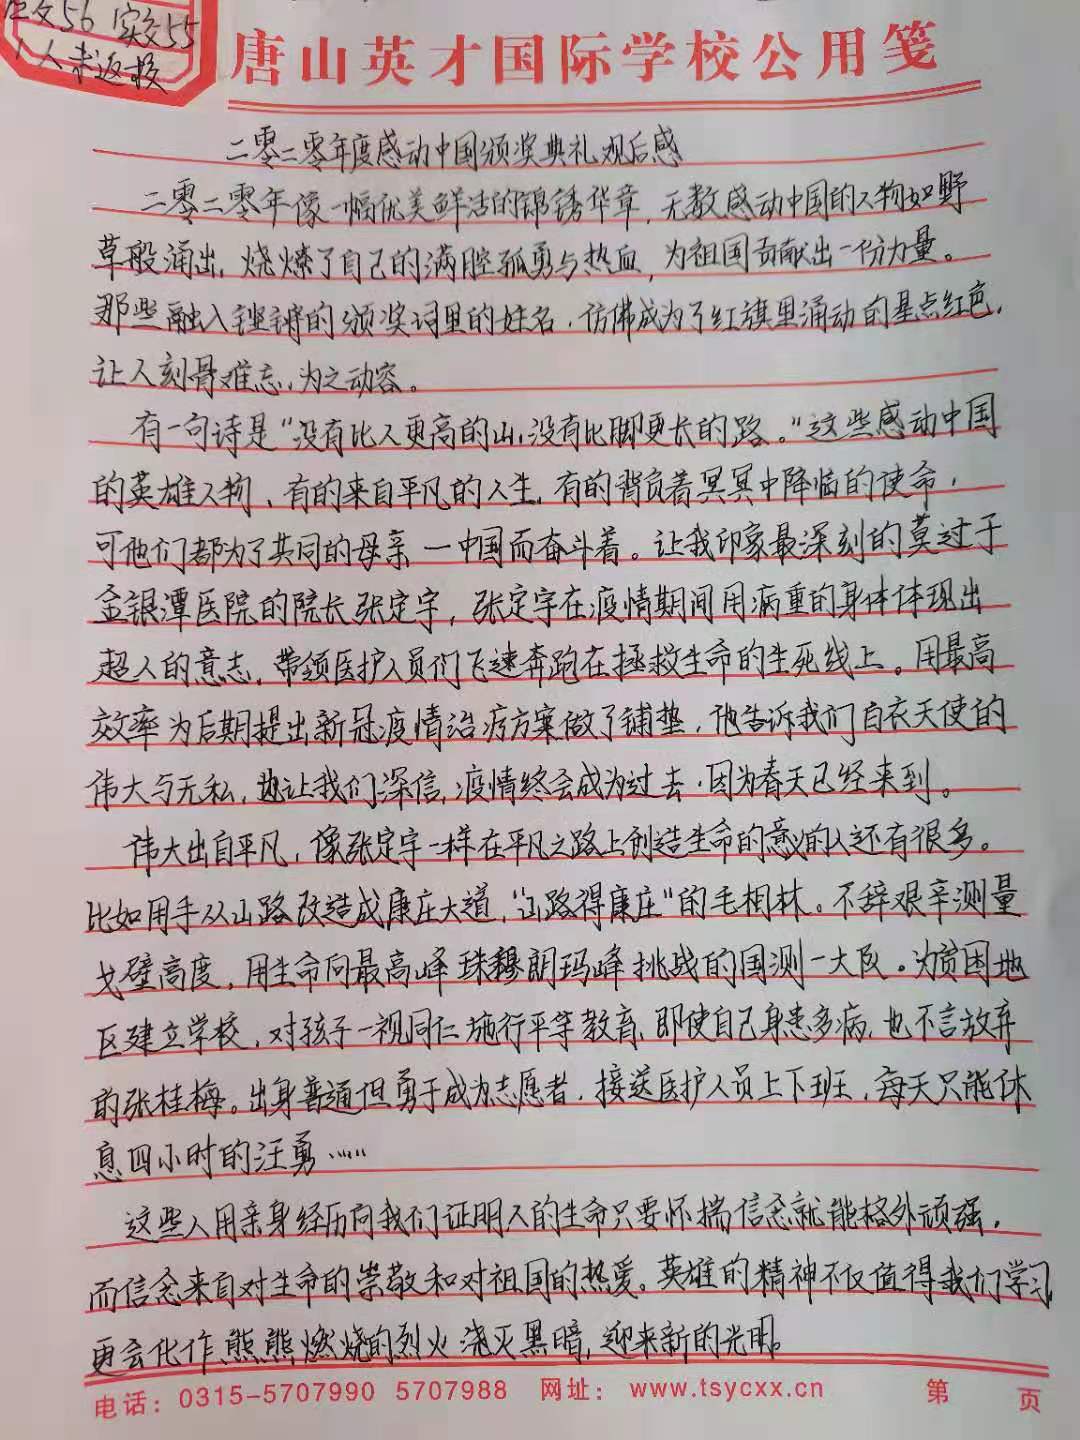 应交56 实交55
1人未返校
唐山英才国际学校公用笺
二零二零年度感动中国颁奖典礼观后感
二零二零年像一幅优美鲜活的锦绣华章，无数感动中国的人物如野
草般涌出，烧燎了自己的满腔孤勇与热血，为祖国贡献出一份力量。
那些融入铿锵的颁奖词里的姓名，仿佛成为了红旗里涌动的星点红色，
让人刻骨难忘，为之动容。
有一句诗是“没有比人更高的山，没有比脚更长的路。”这些感动中国
的英雄人物，有的来自平凡的人生，有的背负着冥冥中降临的使命，
可他们都为了共同的母亲一中国而奋斗着。让我印象最深刻的莫过于
金银潭医院的院长张定宇，张定宇在疫情期间用病重的身体体现出
超人的意志，带领医护人员们飞速奔跑在拯救生命的生死线上。用最高
效率为后期提出新冠疫情治疗方案做了铺垫，他告诉我们白衣天使的
伟大与无私，也让我们深信，疫情终会成为过去，因为春天已经来到。
伟大出自平凡，像张定宇一样在平凡之路上创造生命的意义的人还有很多。
比如用手从山路改造成康庄大道，“山路得康庄”的毛相林。不辞艰辛测量
戈壁高度，用生命向最高峰珠穆朗玛峰挑战的国测一大队。为贫困地
区建立学校，对孩子一视同仁施行平等教育，即使自己身患多病，也不言放弃
的张桂梅。出身普通但勇于成为志愿者，接送医护人员上下班，每天只能休
息四小时的汪勇……
这些人用亲身经历向我们证明人的生命只要怀揣信念就能格外顽强，
而信念来自对生命的崇敬和对祖国的热爱。英雄的精神不仅值得我们学习
更会化作熊熊燃烧的烈火浇灭黑暗，迎来新的光明。
电话：0315-5707990 5707988 网址：www.tsycxx.cn 第 页